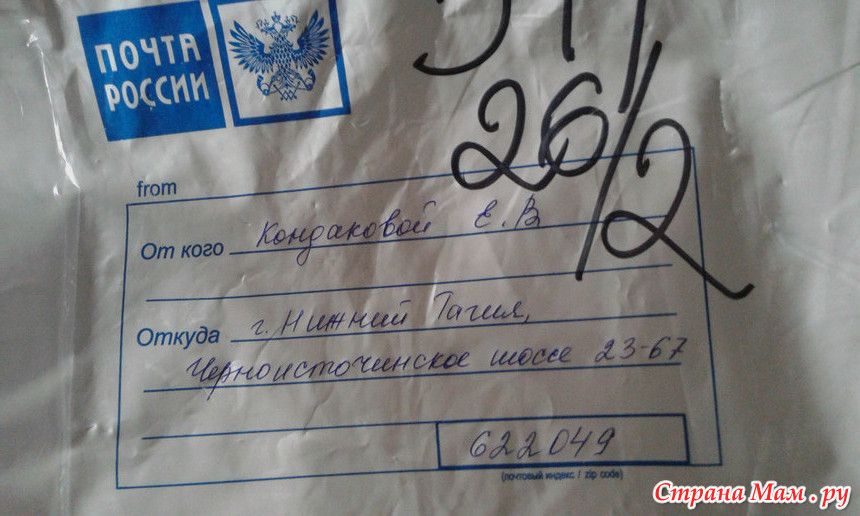 ПОЧТА
РОССИИ
26/2
from
От кого Кондаковой Е.В
Откуда г. Нижний Тагил,
Черноисточинское шоссе 23-67
622049
(почтовый индекс / zip code)
Страна Мам.ру